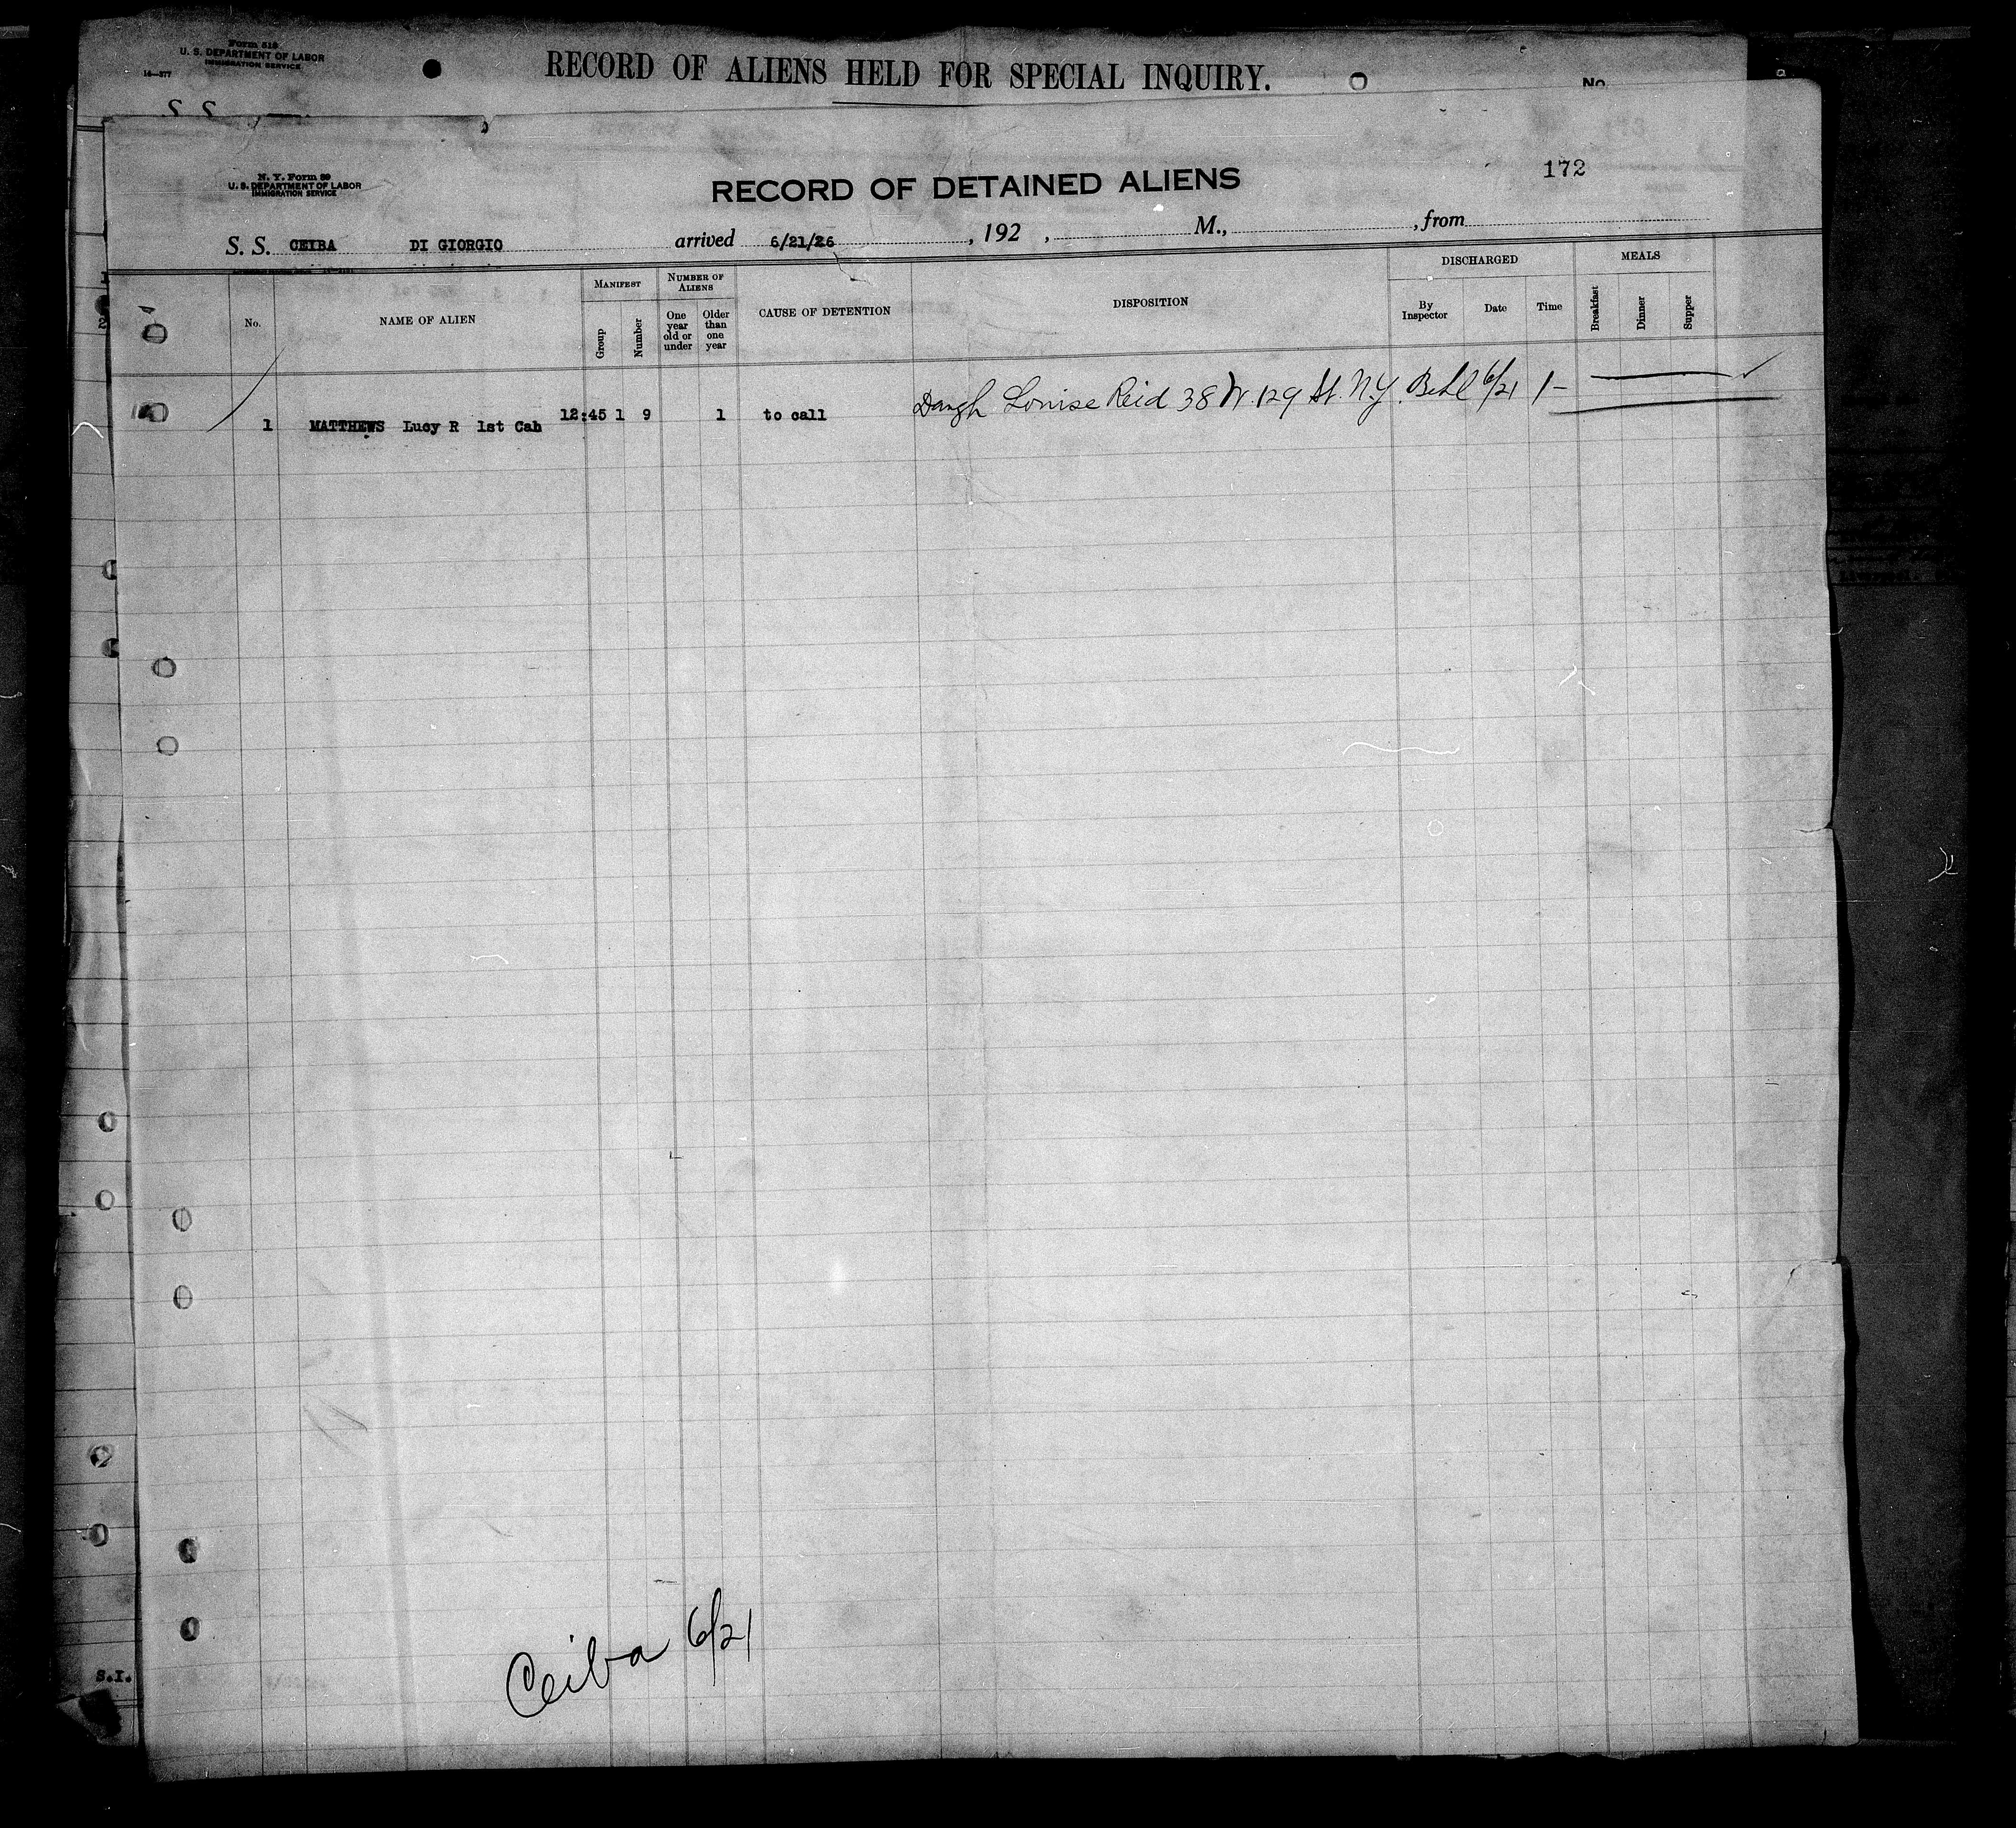 Form 518
U. S. DEPARTMENT OF LABOR
IMMIGRATION SERVICE
14—577
RECORD OF ALIENS HELD FOR SPECIAL INQUIRY.
No.
S. S.
N. Y. Form 89
U. S. DEPARTMENT OF LABOR
IMMIGRATION SERVICE
RECORD OF DETAINED ALIENS
172
S. S. CEIBA DI GIORGIO arrived 6/21/26, 192 , M., , from
No.
NAME OF ALIEN
MANIFEST
Group
Number
NUMBER OF ALIENS
One year old or under
Older than one year
CAUSE OF DETENTION
DISPOSITION
DISCHARGED
By Inspector
Date
Time
MEALS
Breakfast
Dinner
Supper
1
2
1 MATTHEWS Lucy R 1st Cab 12:45 1 9 1 to call Daugh Louise Reid 38 W. 129 St. N.Y. 6/21 1-
Ceiba 6/21
S.I.